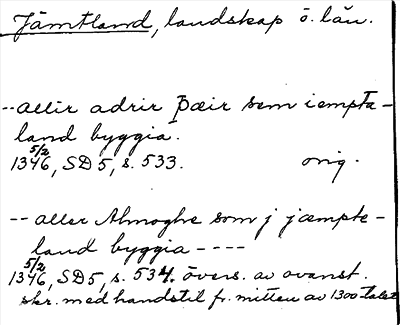 Jämtland, landskap o. län.
--allir adrir þæir sem iempta-
land byggia.
5/2
1346, SD5, s. 533. orig.
-- aller Almoghe som j jæmpte-
land byggia ----
5/2
1346, SD5, s. 534. övers. av ovanst.
skr. med handstil fr. mitten av 1300-talet